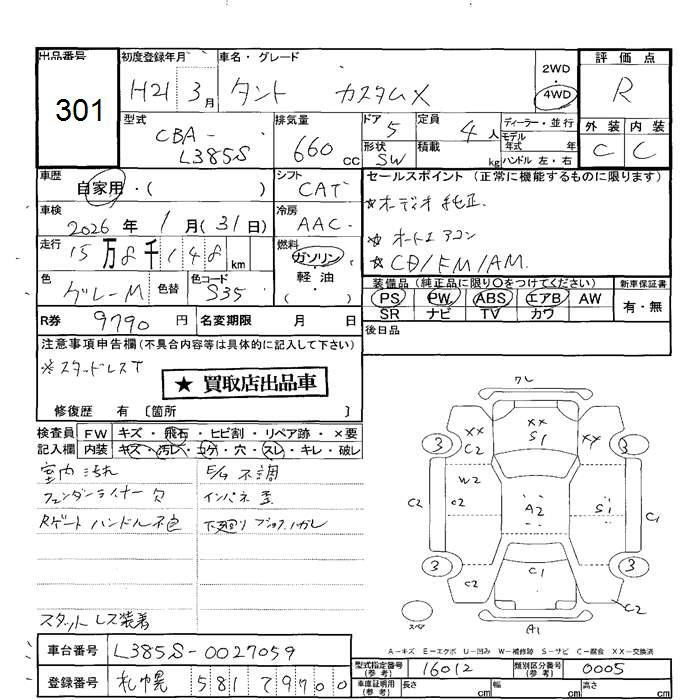 出品番号
301
初度登録年月
H21 3月
車名・グレード
タント カスタムX
2WD
4WD
評価点
R
型式
CBA-
L385S
排気量
660 cc
ドア
5
形状
SW
定員
4人
積載
kg
ディーラー・並行
モデル
年式 年
ハンドル 左・右
外装 内装
C C
車歴
自家用・( )
シフト
CAT
車検
2026年 1月(31日)
冷房
AAC
走行
15万8千148km
燃料
ガソリン・
軽油
・( )
色
グレーM
色替
色コード
S35
R券 9790円
名変期限 月 日
セールスポイント(正常に機能するものに限ります)
*オーディオ純正
*オートエアコン
*CD/FM/AM.
装備品(純正品に限り○をつけてください)
PS PW ABS エアB AW
SR ナビ TV カワ
新車保証書
有・無
後日品
注意事項申告欄(不具合内容等は具体的に記入して下さい)
※スタッドレスT
★買取店出品車
修復歴 有 〔箇所 〕
検査員
記入欄
FW キズ・飛石・ヒビ割・リペア跡・×要
内装 キズ・汚レ・コゲ・穴・スレ・キレ・破レ
室内汚れ
フェンダーライナー欠
Rゲートハンドル不良
スタットレス装着
E/G不調
インパネ歪
下廻り
ワレ
XX
S1
XX
C2
XX
3
3
W2
C2
C2
A2
S1
C1
3
3
C1
C2
C2
A1
スペア
A-キズ E-エクボ U-凹み W-補修跡 S-サビ C-腐食 XX-交換済
車台番号 L385S-0027059
登録番号 札幌 581 7 9700
型式指定番号
(参考)
16012
類別区分番号
(参考)
0005
車庫証明用
(参考)
長さ cm 幅 cm 高さ cm